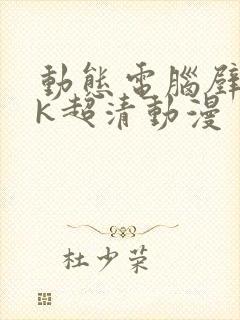 動態電腦壁
K超清動漫
杜少榮